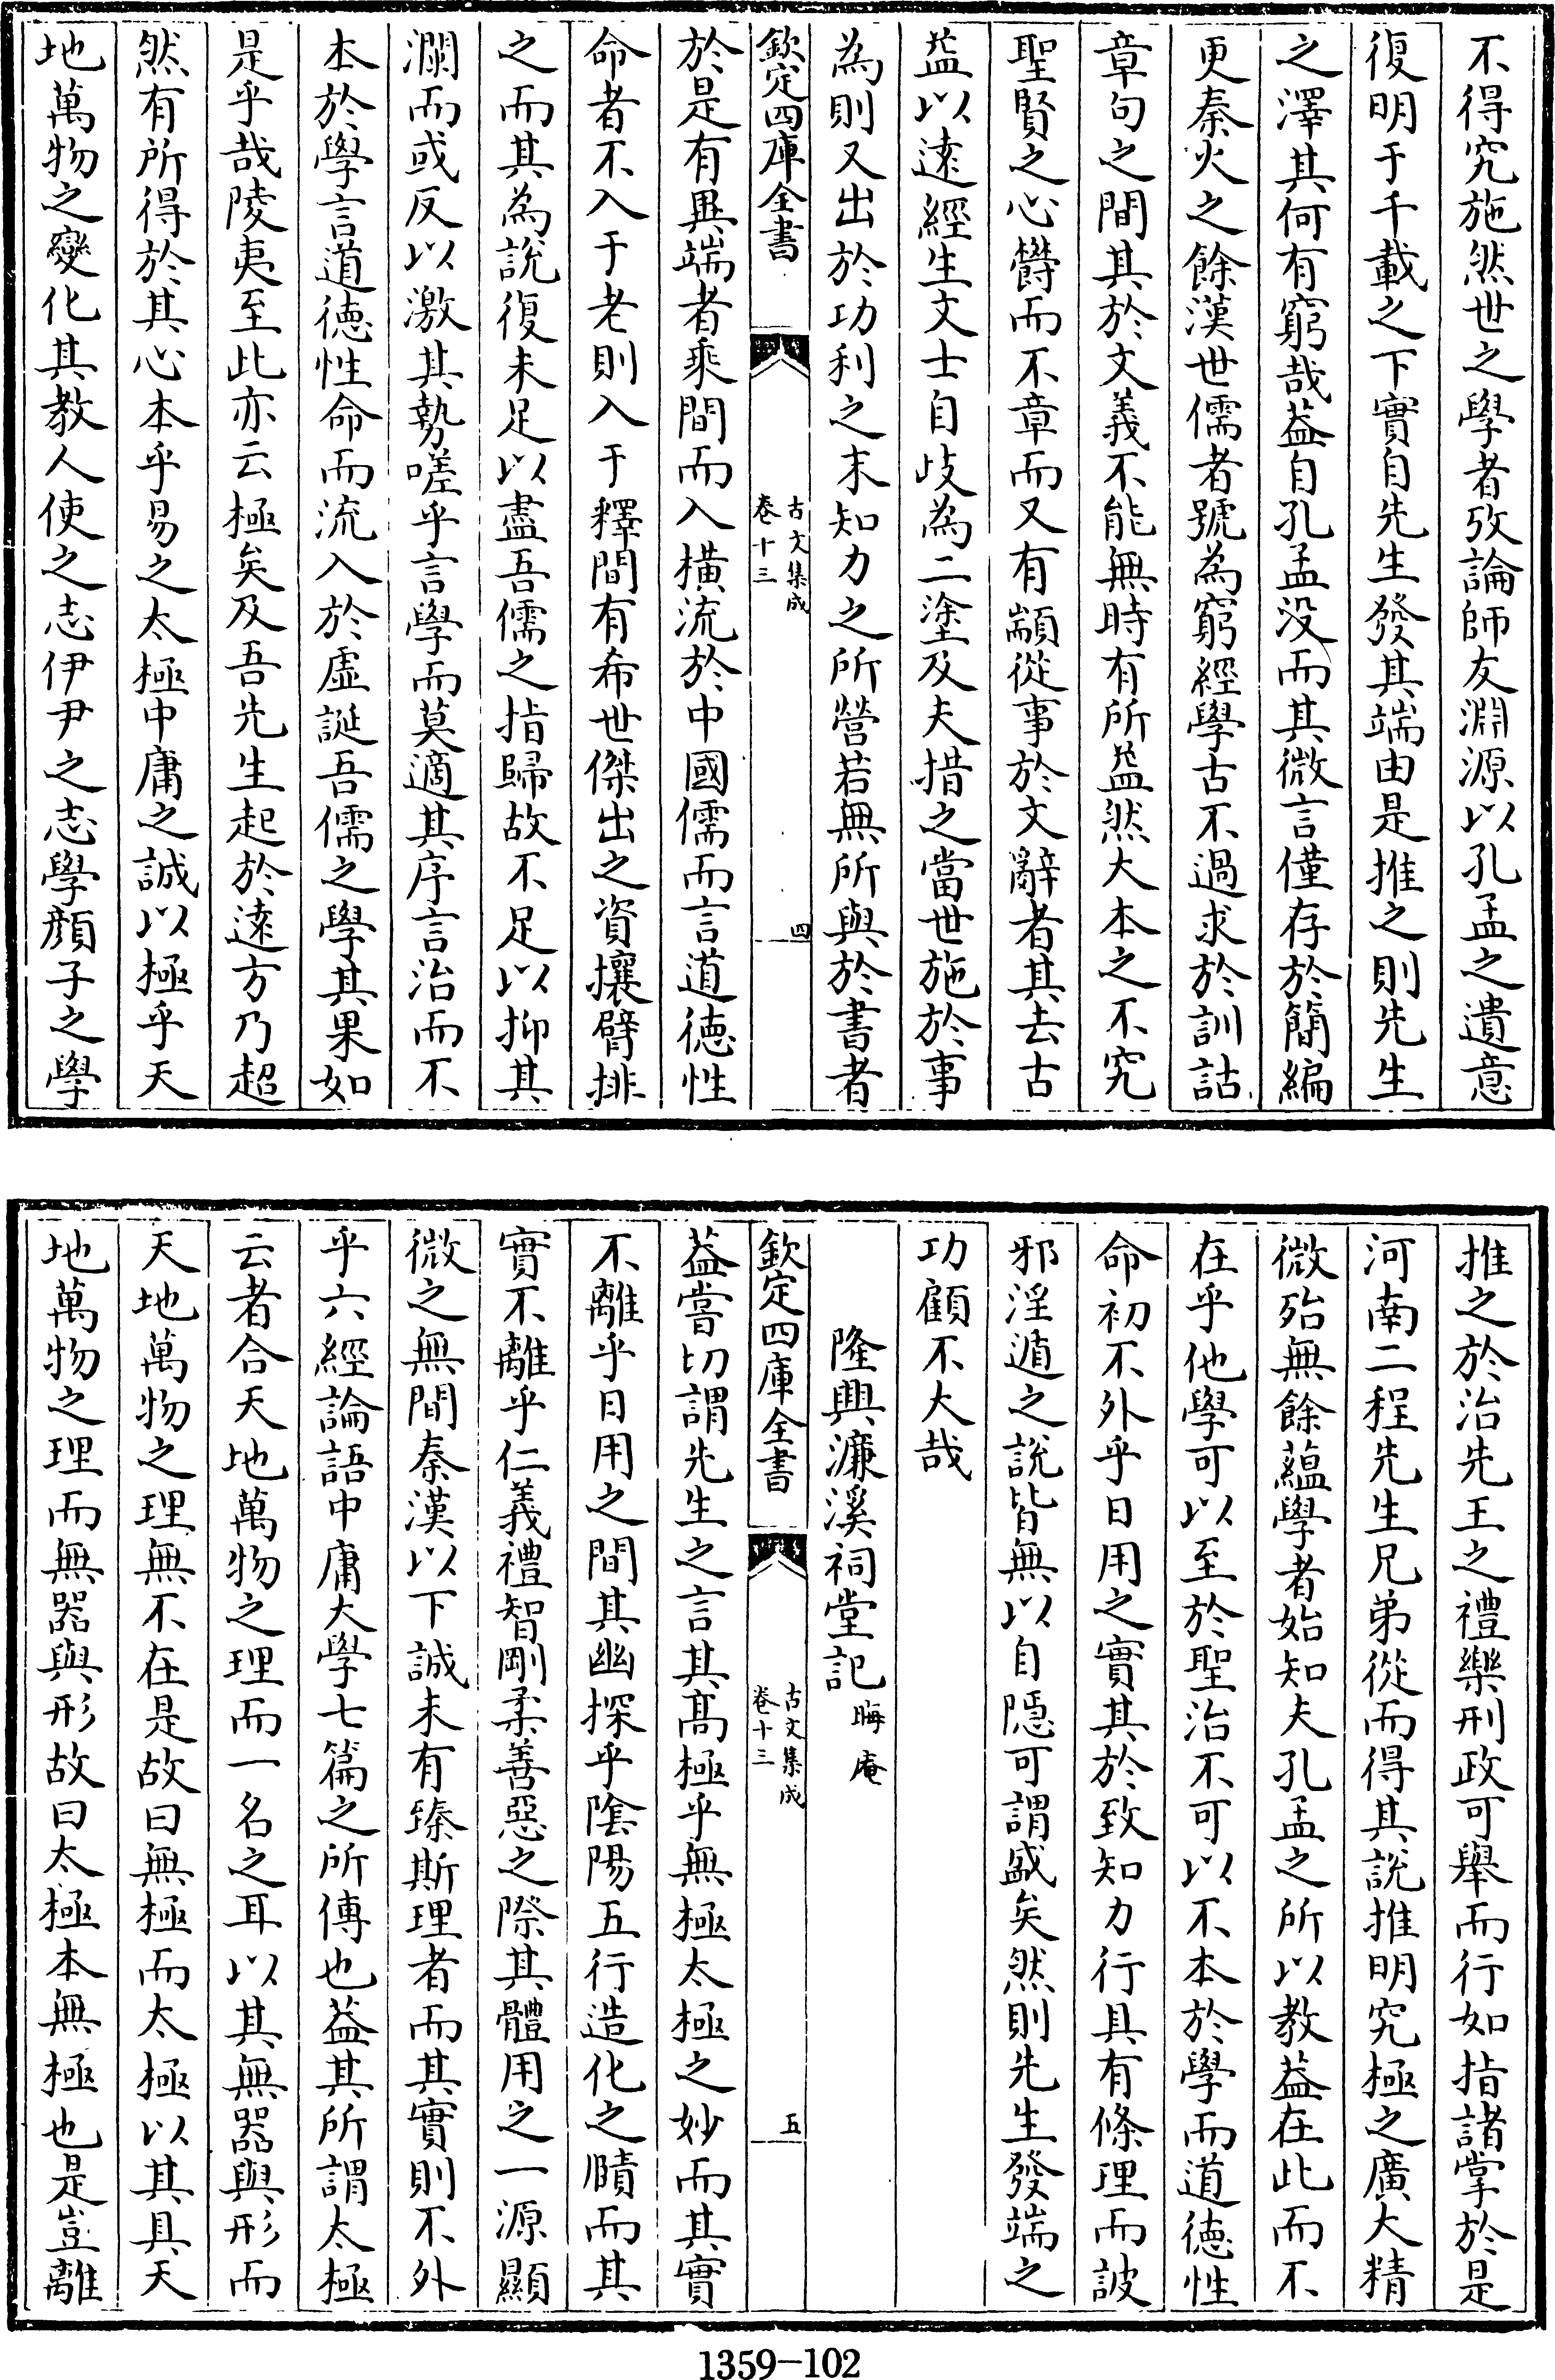 不得究施然世之學者攷論師友淵源以孔孟之遺意
復明于千載之下實自先生發其端由是推之則先生
之澤其何有窮哉葢自孔孟没而其微言僅存於簡編
更秦火之餘漢世儒者號為窮經學古不過求於訓詁
章句之間其於文義不能無時有所益然大本之不究
聖賢之心欎而不章而又有顓從事於文辭者其去古
益以逺經生文士自歧為二塗及夫措之當世施於事
為則又出於功利之末知力之所營若無所與於書者
欽定四庫全書
古文集成
卷十三
四
於是有異端者乘間而入橫流於中國儒而言道德性
命者不入于老則入于釋間有希世傑出之資攘臂排
之而其為説復未足以盡吾儒之指歸故不足以抑其
瀾而或反以激其勢嗟乎言學而莫適其序言治而不
本於學言道德性命而流入於虛誕吾儒之學其果如
是乎哉陵夷至此亦云極矣及吾先生起於逺方乃超
然有所得於其心本乎易之太極中庸之誠以極乎天
地萬物之變化其教人使之志伊尹之志學顔子之學
推之於治先王之禮樂刑政可舉而行如指諸掌於是
河南二程先生兄弟從而得其説推明究極之廣大精
微殆無餘藴學者始知夫孔孟之所以教葢在此而不
在乎他學可以至於聖治不可以不本於學而道德性
命初不外乎日用之實其於致知力行具有條理而詖
邪淫遁之説皆無以自隠可謂盛矣然則先生發端之
功顧不大哉
隆興濂溪祠堂記 晦庵
欽定四庫全書
古文集成
卷十三
五
葢嘗切謂先生之言其髙極乎無極太極之妙而其實
不離乎日用之間其幽探乎陰陽五行造化之賾而其
實不離乎仁義禮智剛柔善惡之際其體用之一源顯
微之無間秦漢以下誠未有臻斯理者而其實則不外
乎六經論語中庸大學七篇之所傳也葢其所謂太極
云者合天地萬物之理而一名之耳以其無器與形而
天地萬物之理無不在是故曰無極而太極以其具天
地萬物之理而無器與形故曰太極本無極也是豈離
1359-102